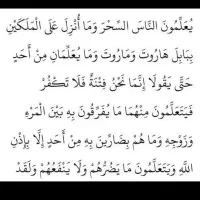 يُعَلِّمُونَ النَّاسَ السِّحْرَ وَمَا أُنْزِلَ عَلَى الْمَلَكَيْنِ
بِبَابِلَ هَارُوتَ وَمَارُوتَ وَمَا يُعَلِّمَانِ مِنْ أَحَدٍ
حَتَّى يَقُولَا إِنَّمَا نَحْنُ فِتْنَةٌ فَلَا تَكْفُرْ
فَيَتَعَلَّمُونَ مِنْهُمَا مَا يُفَرِّقُونَ بِهِ بَيْنَ الْمَرْءِ
وَزَوْجِهِ وَمَا هُمْ بِضَارِّينَ بِهِ مِنْ أَحَدٍ إِلَّا بِإِذْنِ
اللَّهِ وَيَتَعَلَّمُونَ مَا يَضُرُّهُمْ وَلَا يَنْفَعُهُمْ وَلَقَدْ